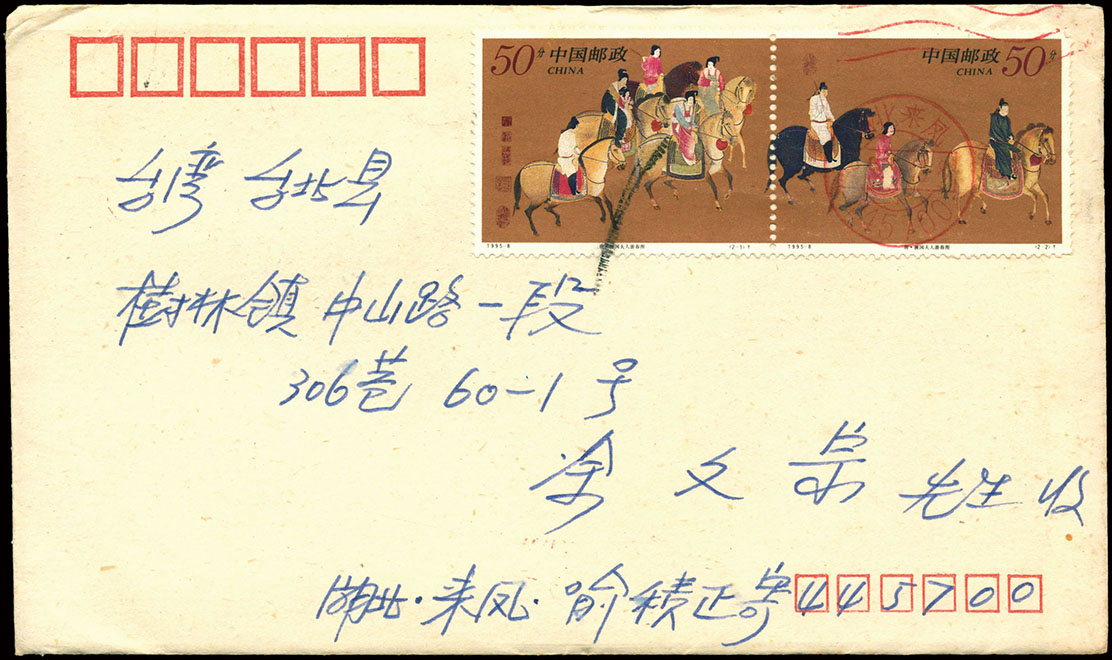 50分 中国邮政
CHINA
中国邮政 50分
CHINA
1995-8
(2-1)T
1995-8
(2-2)T
台湾 台北县
树林镇 中山路一段
306巷 60-1号
余文宗 先生 收
湖北·来凤·喻积正寄 445700